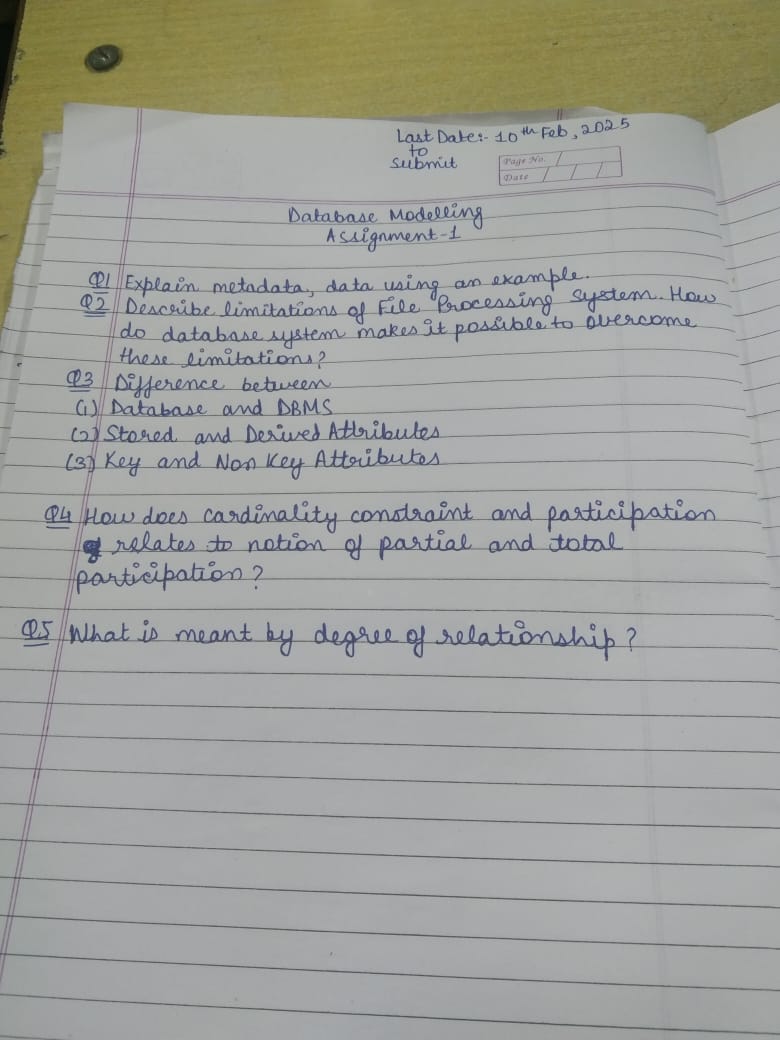 Last Date:- 10th Feb, 2025
to
submit
Page No.
Date
Database Modelling
Assignment-1
Q1 Explain metadata, data using an example.
Q2 Describe limitations of File Processing system. How
do database system makes it possible to overcome
these limitations?
Q3 Difference between
(1) Database and DBMS
(2) Stored and Derived Attributes
(3) Key and Non Key Attributes
Q4 How does cardinality constraint and participation
relates to notion of partial and total
participation?
Q5 What is meant by degree of relationship?